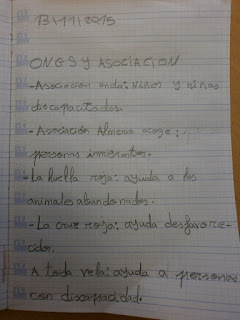 13/11/2015
ONGS Y ASOCIACION
-Asociacion anda: Niños y niñas
discapacitados.
-Asociación Almeria acoge:
personas inmigrantes.
-La huella roja: ayuda a los
animales abandonados.
-La cruz roja: ayuda desfavore-
cidos.
A toda vela: ayuda a personas
con discapacidad.